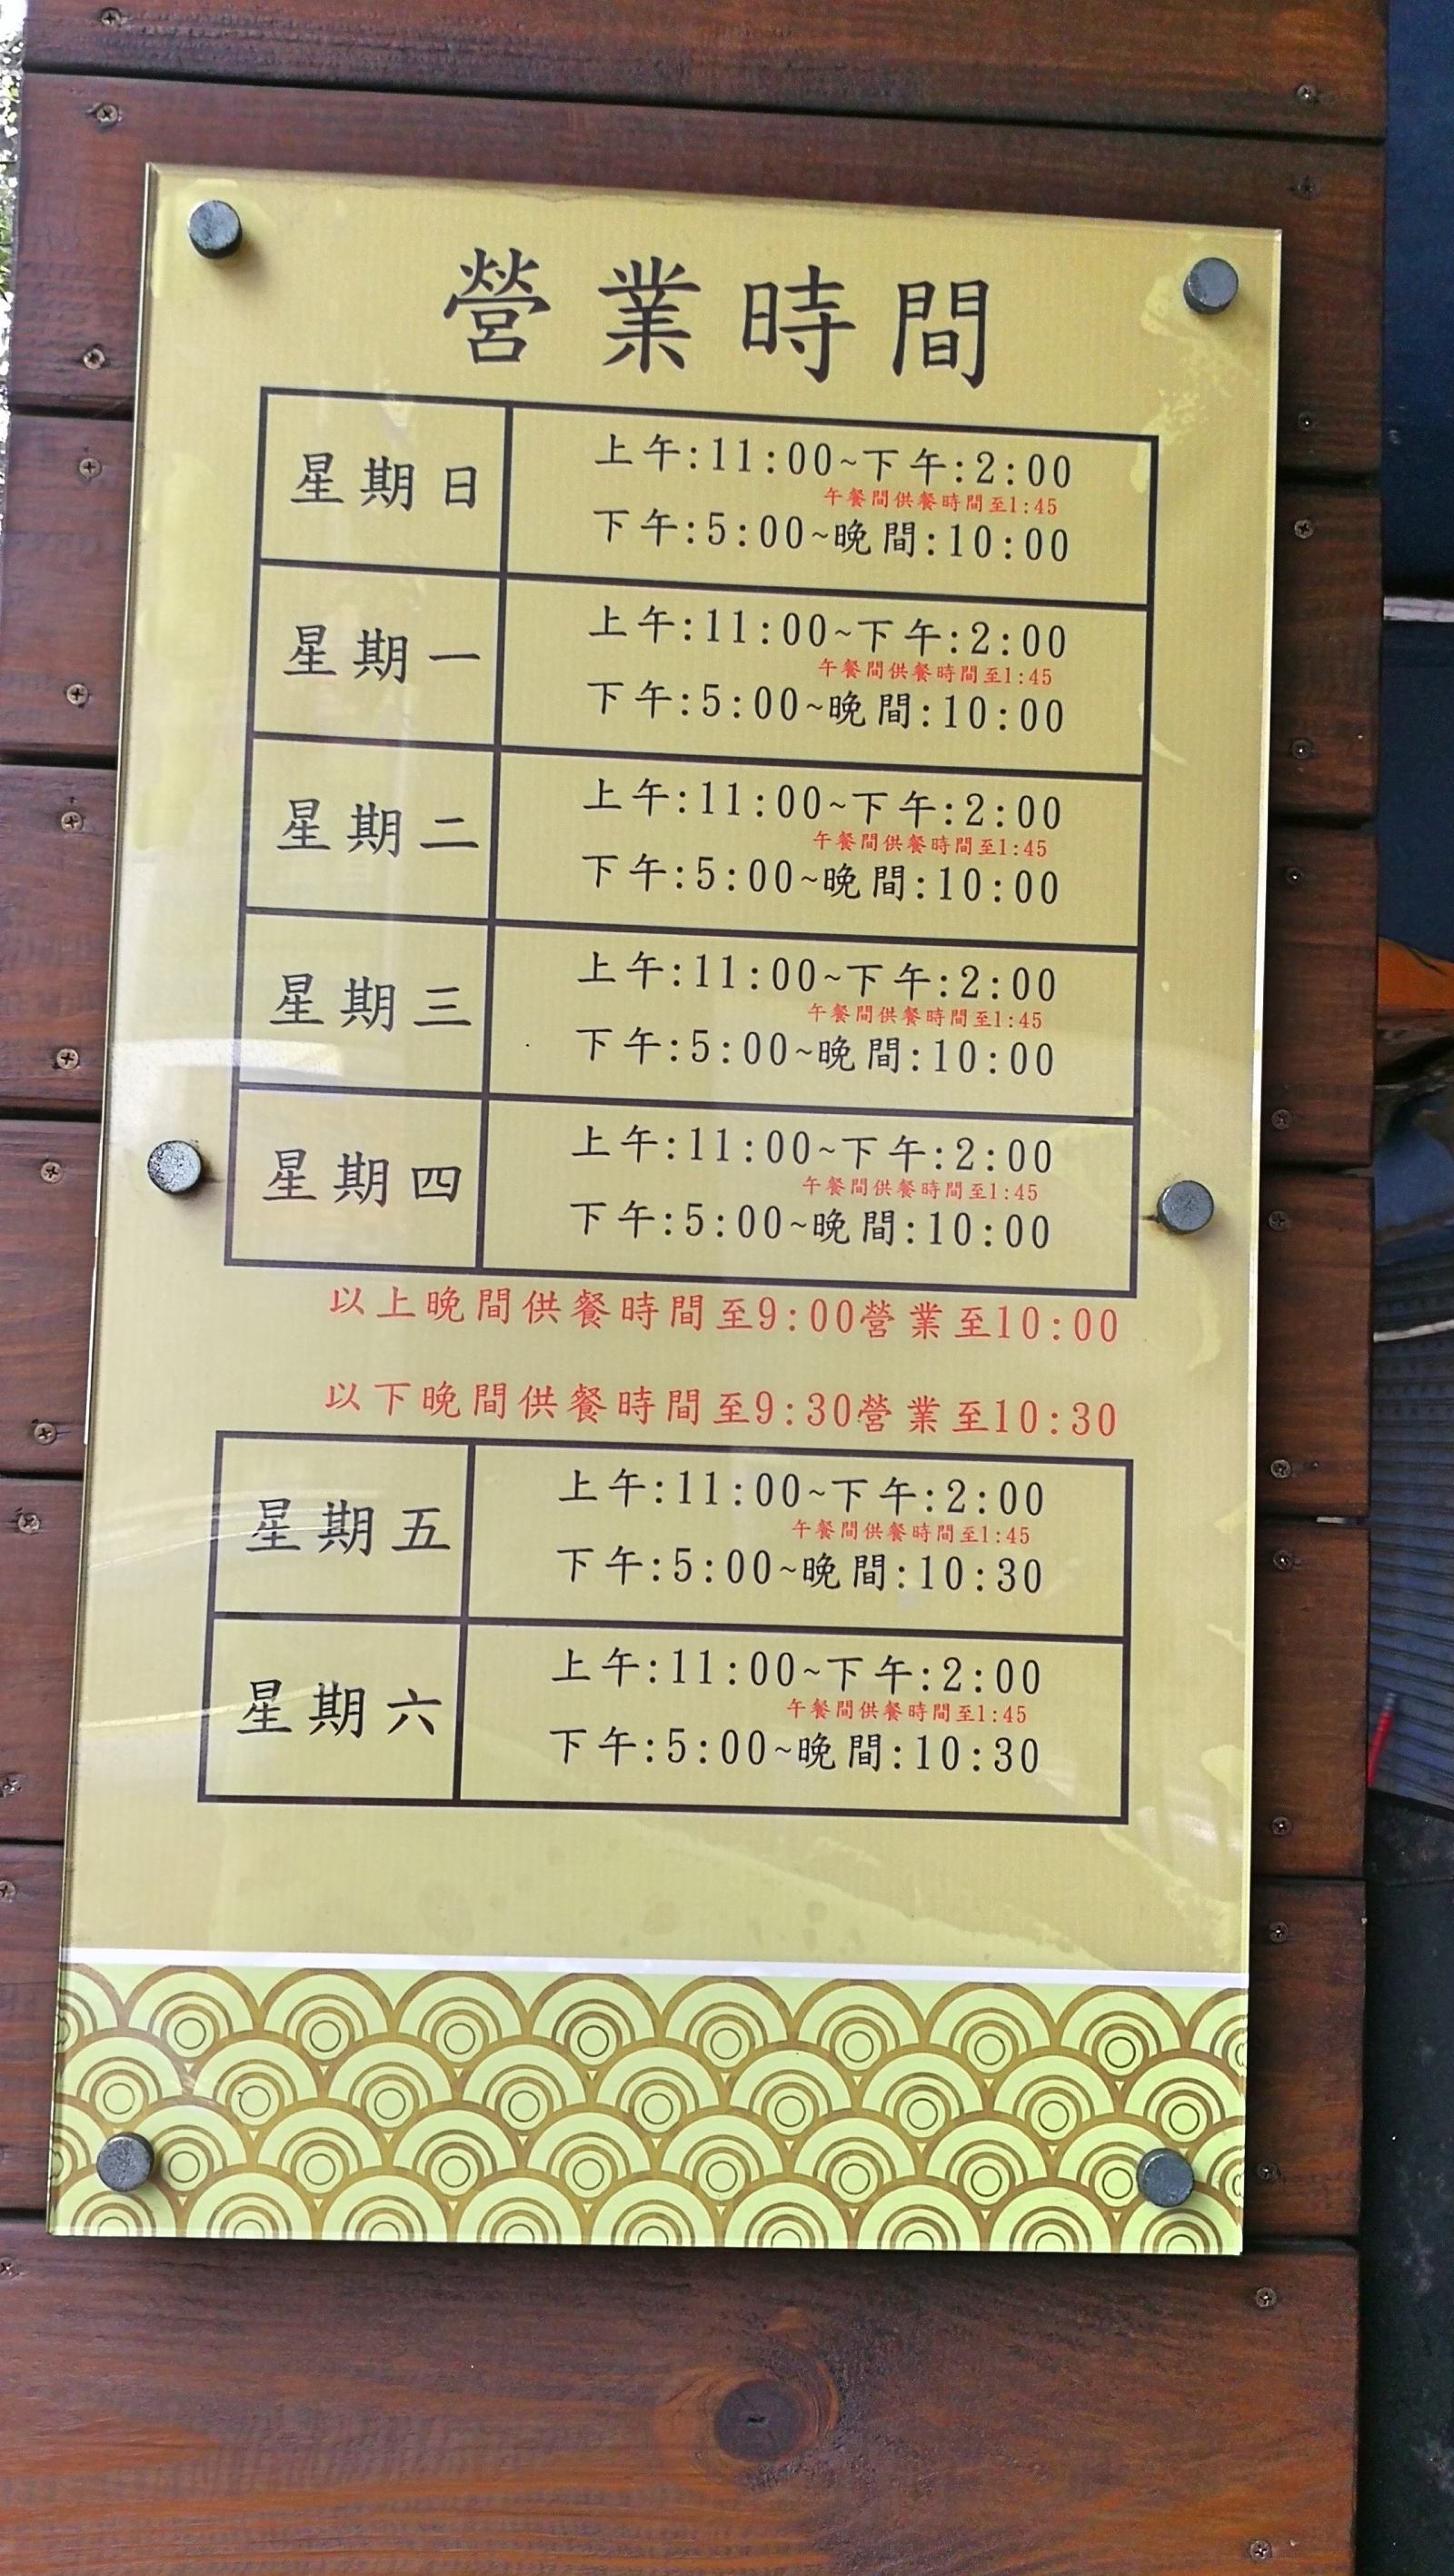 營業時間
星期日
上午:11:00~下午:2:00
午餐間供餐時間至1:45
下午:5:00~晚間:10:00
星期一
上午:11:00~下午:2:00
午餐間供餐時間至1:45
下午:5:00~晚間:10:00
星期二
上午:11:00~下午:2:00
午餐間供餐時間至1:45
下午:5:00~晚間:10:00
星期三
上午:11:00~下午:2:00
午餐間供餐時間至1:45
下午:5:00~晚間:10:00
星期四
上午:11:00~下午:2:00
午餐間供餐時間至1:45
下午:5:00~晚間:10:00
以上晚間供餐時間至9:00營業至10:00
以下晚間供餐時間至9:30營業至10:30
星期五
上午:11:00~下午:2:00
午餐間供餐時間至1:45
下午:5:00~晚間:10:30
星期六
上午:11:00~下午:2:00
午餐間供餐時間至1:45
下午:5:00~晚間:10:30